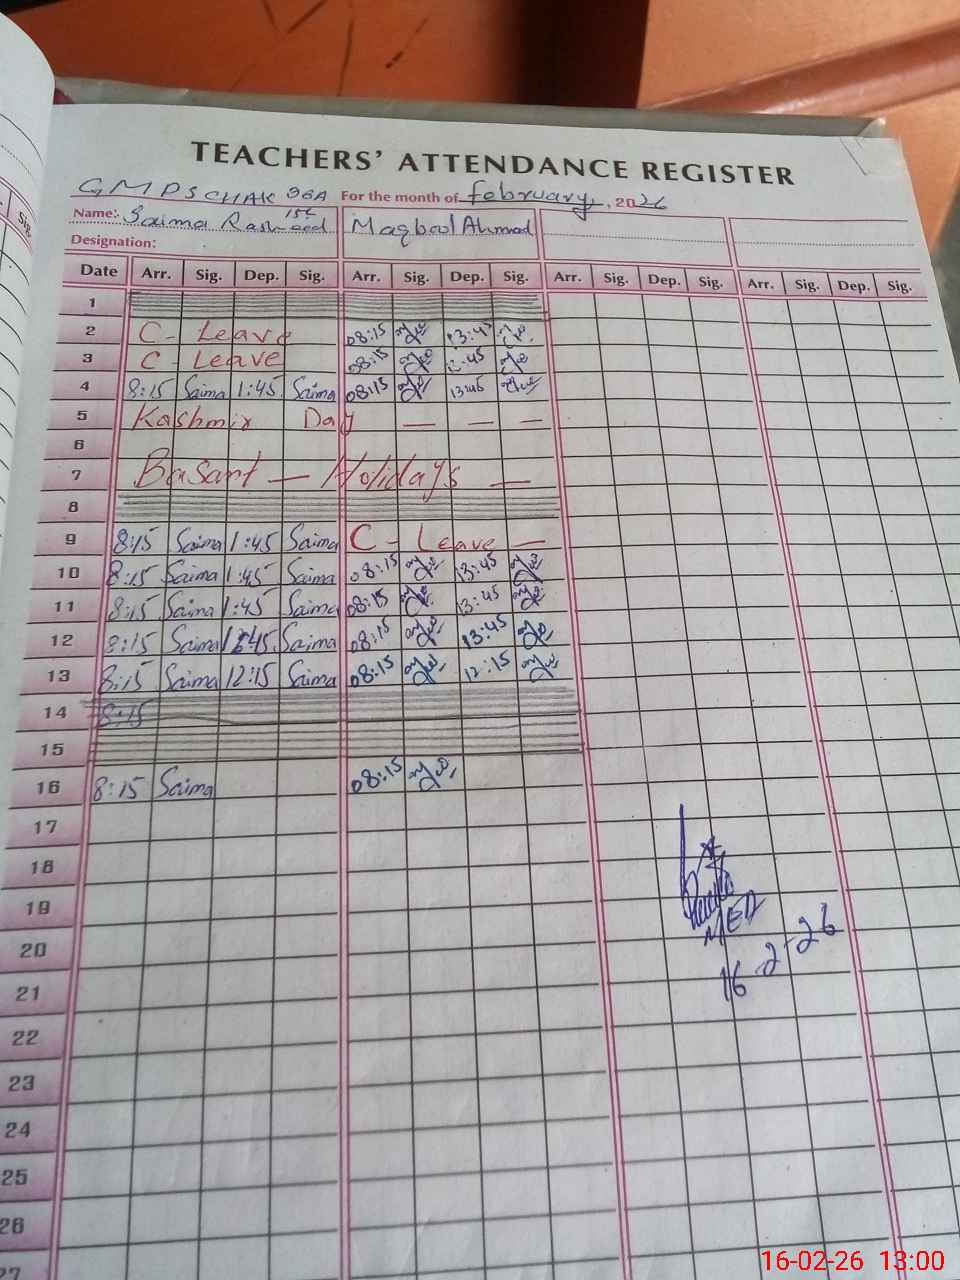 TEACHERS' ATTENDANCE REGISTER
GMPS CHAK 96A For the month of February, 2026
Name:- Saima Rasheed Maqbool Ahmad
Designation:
Date Arr. Sig. Dep. Sig. Arr. Sig. Dep. Sig. Arr. Sig. Dep. Sig. Arr. Sig. Dep. Sig.
1
2 C - Leave 08:15 13:45
3 C - Leave 08:15 13:45
4 8:15 Saima 1:45 Saima 08:15 13:45
5 Kashmir Day — — —
6
7 Basant — Holidays —
8
9 8:15 Saima 1:45 Saima C - Leave —
10 8:15 Saima 1:45 Saima 08:15 13:45
11 8:15 Saima 1:45 Saima 08:15 13:45
12 8:15 Saima 1:45 Saima 08:15 13:45
13 8:15 Saima 12:15 Saima 08:15 12:15
14 8:15
15
16 8:15 Saima 08:15
17
18
19
MED
20
16-2-26
21
22
23
24
25
26
27
16-02-26 13:00